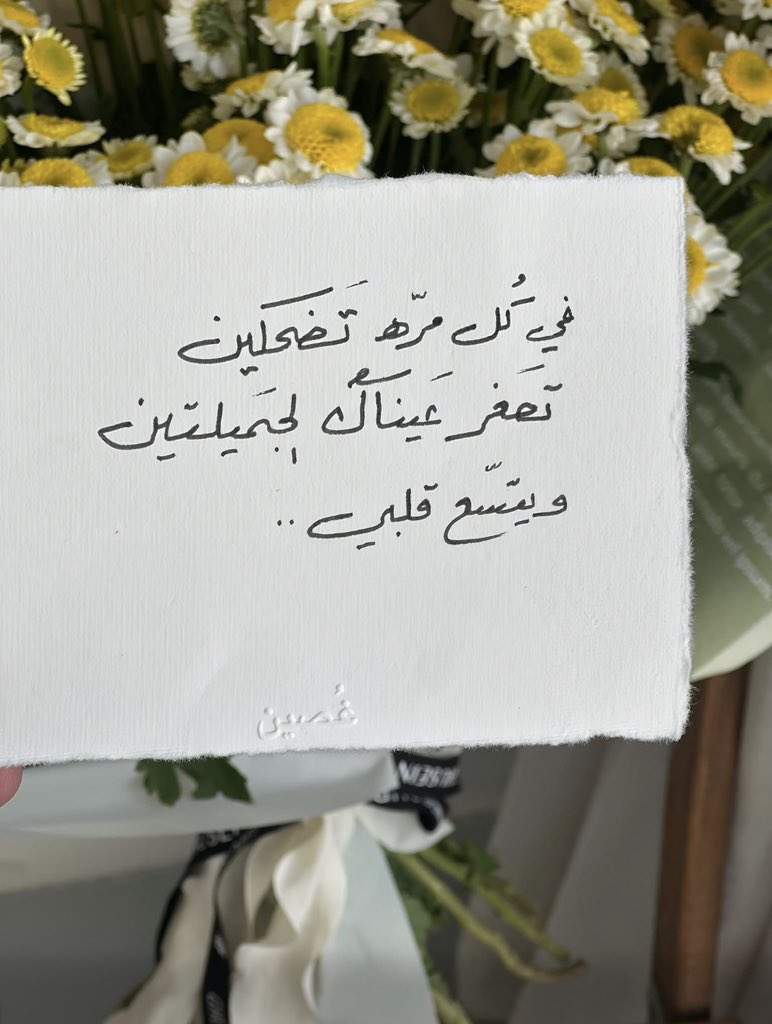 في كُل مرّه تَضحكين
تَصغر عَيناكْ الجَميلتين
ويتسّع قلبي ..
غُصين